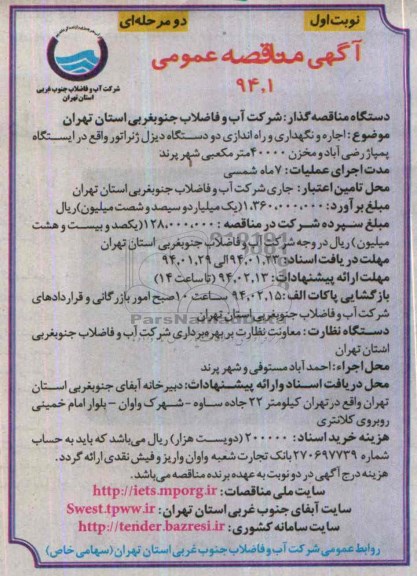 نوبت اول
دو مرحله‌ای
آگهی مناقصه عمومی
۹۴.۱
شرکت آب و فاضلاب جنوب غربی
استان تهران
دستگاه مناقصه گذار: شرکت آب و فاضلاب جنوبغربی استان تهران
موضوع: اجاره و نگهداری و راه اندازی دو دستگاه دیزل ژنراتور واقع در ایستگاه
پمپاژ رضی آباد و مخزن ۴۰۰۰۰متر مکعبی شهر پرند
مدت اجرای عملیات: ۷ماه شمسی
محل تامین اعتبار: جاری شرکت آب و فاضلاب جنوبغربی استان تهران
مبلغ برآورد: ۱،۳۶۰،۰۰۰،۰۰۰(یک میلیارد و سیصد و شصت میلیون)ریال
مبلغ سپرده شرکت در مناقصه: ۱۲۸،۰۰۰،۰۰۰(یکصد و بیست و هشت
میلیون) ریال در وجه شرکت آب و فاضلاب جنوبغربی استان تهران
مهلت دریافت اسناد: ۹۴،۰۱،۲۳الی ۹۴،۰۱،۲۹
مهلت ارائه پیشنهادات: ۹۴،۰۲،۱۳ (تا ساعت ۱۴)
بازگشایی پاکات الف: ۹۴،۰۲،۱۵ ساعت ۱۰صبح امور بازرگانی و قراردادهای
شرکت آب و فاضلاب جنوبغربی استان تهران
دستگاه نظارت: معاونت نظارت بر بهره برداری شرکت آب و فاضلاب جنوبغربی
استان تهران
محل اجراء: احمد آباد مستوفی و شهر پرند
محل دریافت اسناد وارائه پیشنهادات: دبیرخانه آبفای جنوبغربی استان
تهران واقع در تهران کیلومتر ۲۲ جاده ساوه - شهرک واوان - بلوار امام خمینی
روبروی کلانتری
هزینه خرید اسناد: ۲۰۰۰۰۰ (دویست هزار) ریال می‌باشد که باید به حساب
شماره ۲۷۰۶۹۷۷۳۹ بانک تجارت شعبه واوان واریز و فیش نقدی ارائه گردد.
هزینه درج آگهی در دو نوبت به عهده برنده مناقصه می‌باشد.
سایت ملی مناقصات: http://iets.mporg.ir
سایت آبفای جنوب غربی استان تهران: Swest.tpww.ir
سایت سامانه کشوری: http://tender.bazresi.ir
روابط عمومی شرکت آب و فاضلاب جنوب غربی استان تهران (سهامی خاص)